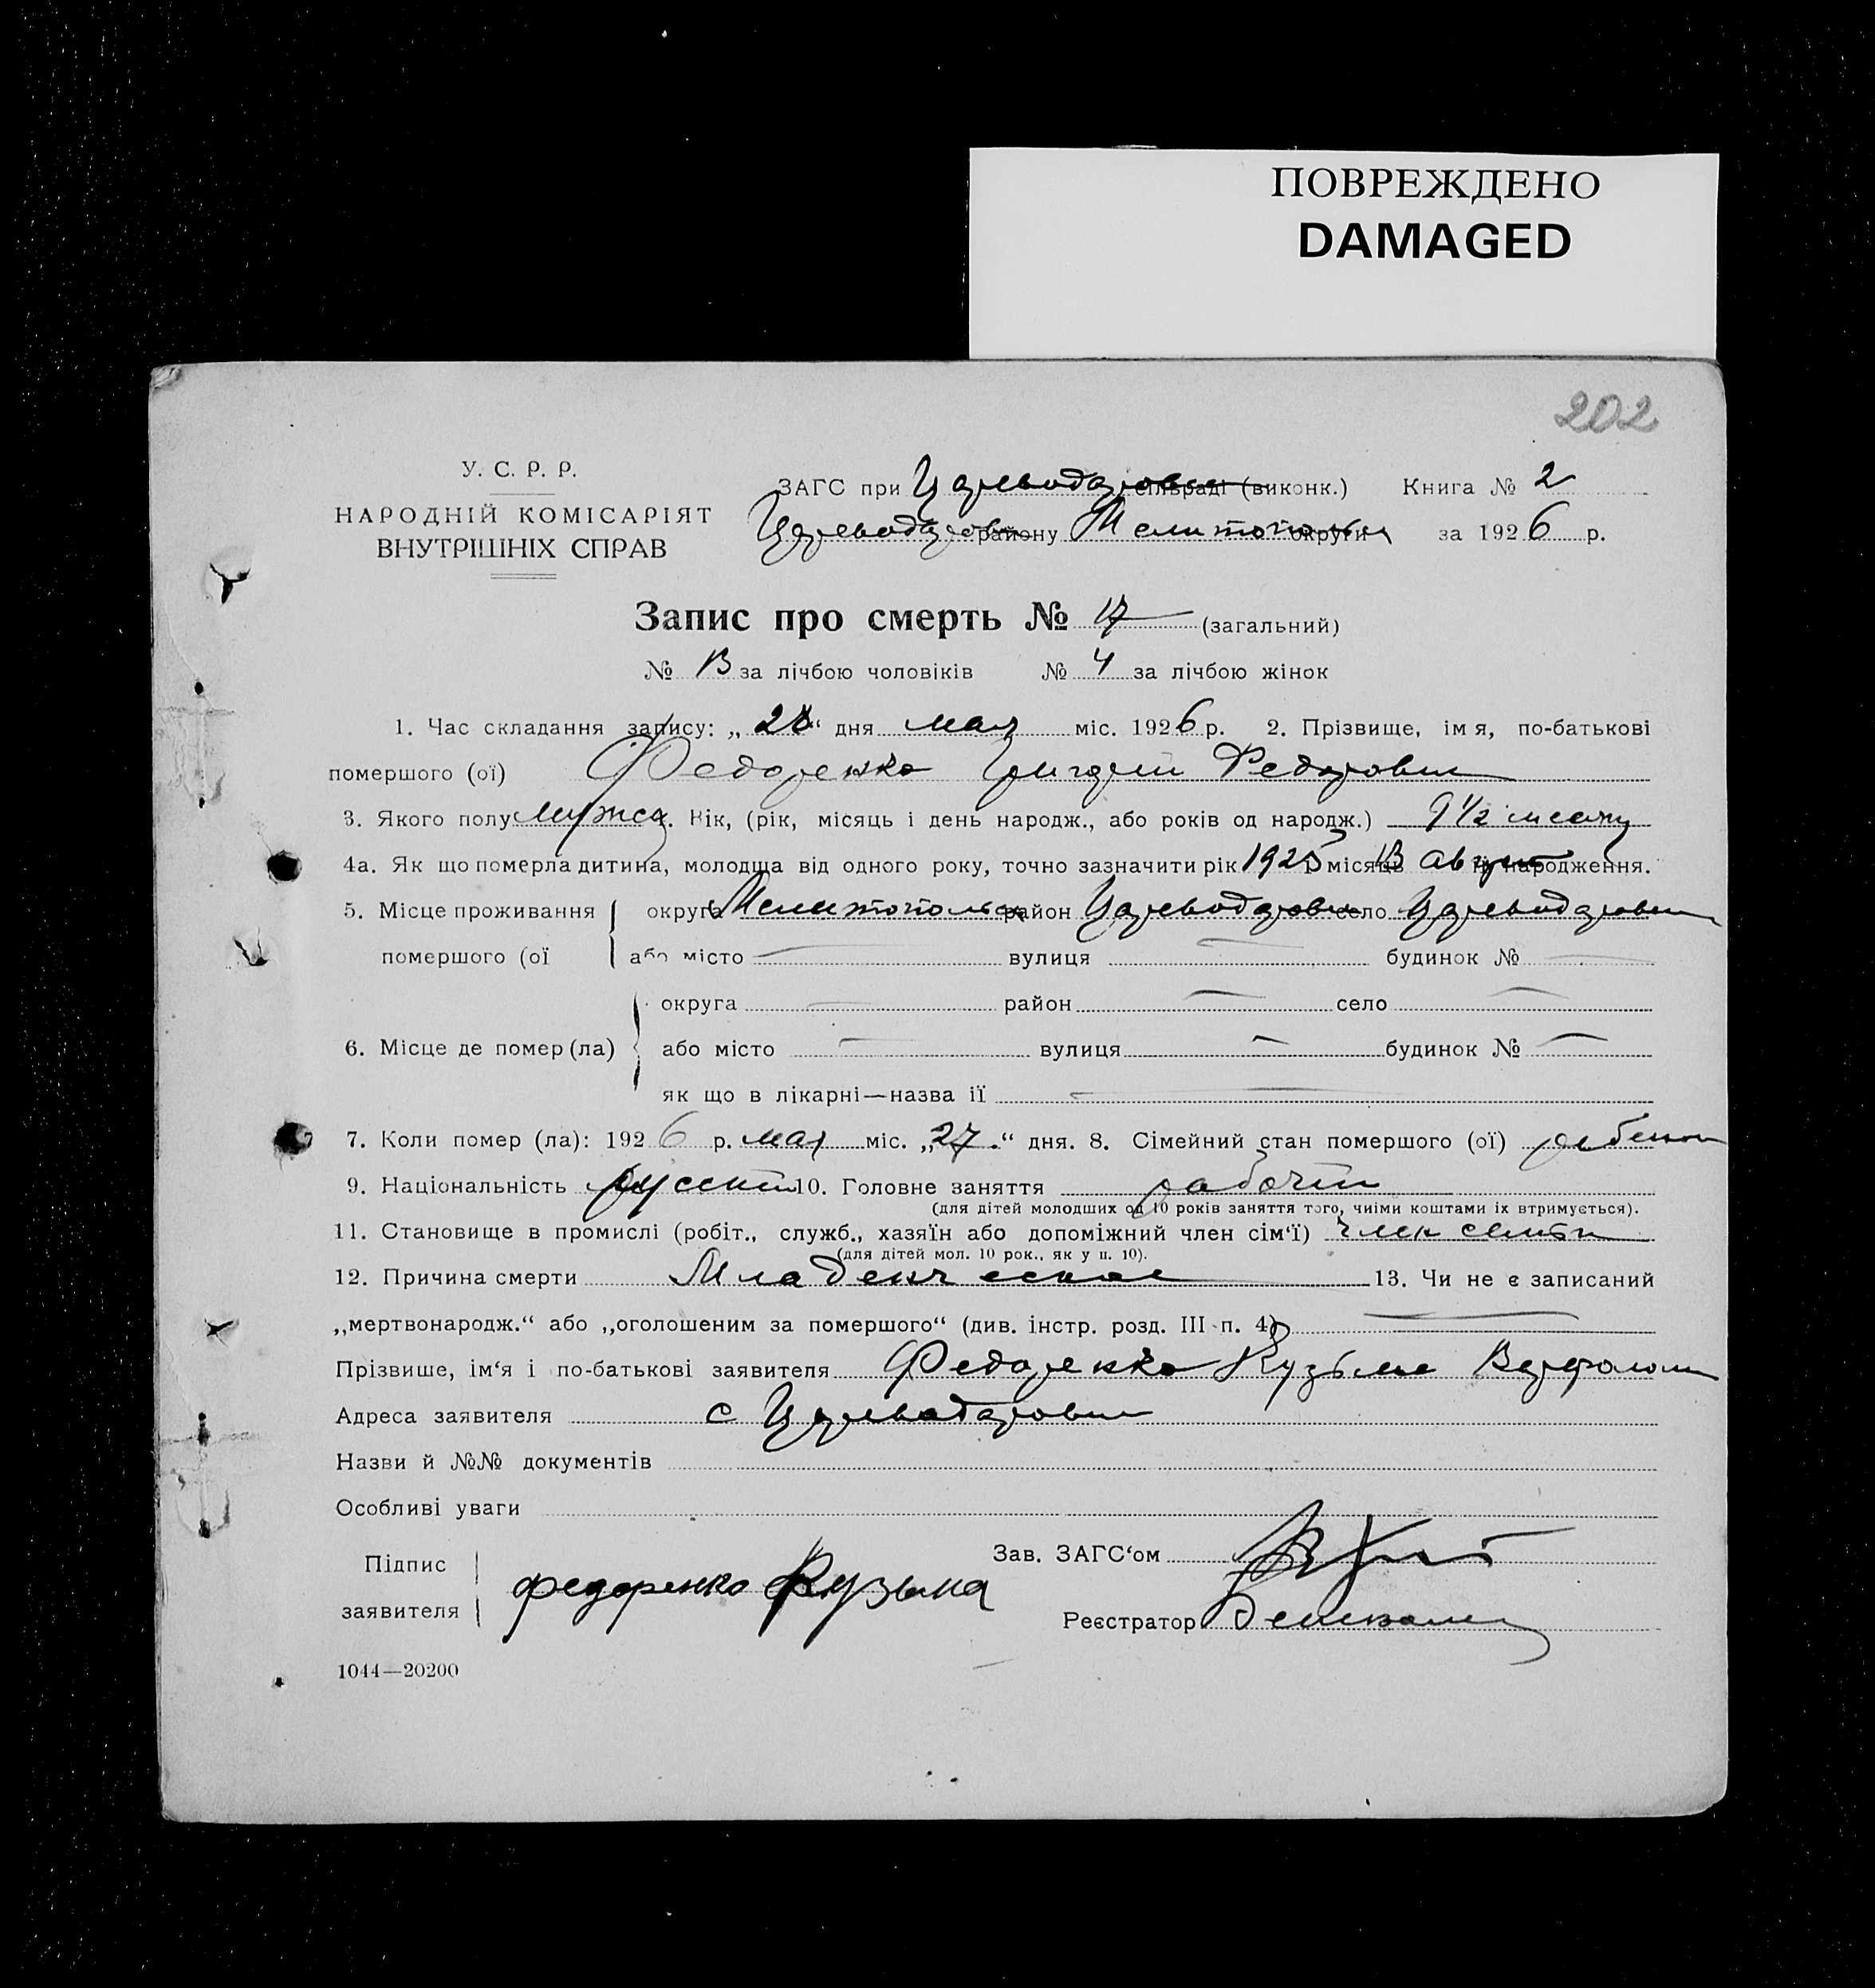 ПОВРЕЖДЕНО
DAMAGED
202
У. С. Р. Р.
НАРОДНІЙ КОМІСАРІЯТ
ВНУТРІШНІХ СПРАВ
ЗАГС при сільраді (виконк.) Книга № 2
району округи за 1926 р.
Запис про смерть № 17 (загальний)
№ 13 за лічбою чоловіків № 4 за лічбою жінок
1. Час складання запису: „28“ дня мая міс. 1926 р. 2. Прізвище, імя, по-батькові
помершого (ої) Федоренко Григорий Федорович
3. Якого полу мужск. Вік, (рік, місяць і день народж., або років од народж.) 9 1/2 месяц
4а. Як що померла дитина, молодща від одного року, точно зазначити рік 1925 місяць 13 август її народження.
5. Місце проживання округа Мелитопольск район село
помершого (ої або місто — вулиця — будинок № —
округа — район — село —
6. Місце де помер (ла) або місто — вулиця — будинок № —
як що в лікарні—назва її —
7. Коли помер (ла): 1926 р. мая міс. „27.“ дня. 8. Сімейний стан помершого (ої) ребенок
9. Національність русский 10. Головне заняття рабочий
(для дітей молодших од 10 років заняття того, чиїми коштами їх втримується).
11. Становище в промислі (робіт., служб., хазяїн або допоміжний член сім‘ї) член семьи
(для дітей мол. 10 рок., як у п. 10).
12. Причина смерти Младенческая 13. Чи не є записаний
„мертвонародж.“ або „оголошеним за помершого“ (див. інстр. розд. III п. 4) —
Прізвише, ім‘я і по-батькові заявителя Федоренко Кузьма
Адреса заявителя с
Назви й №№ документів
Особливі уваги
Зав. ЗАГС‘ом
Підпис
заявителя федоренко Кузьма
Реєстратор
1044—20200